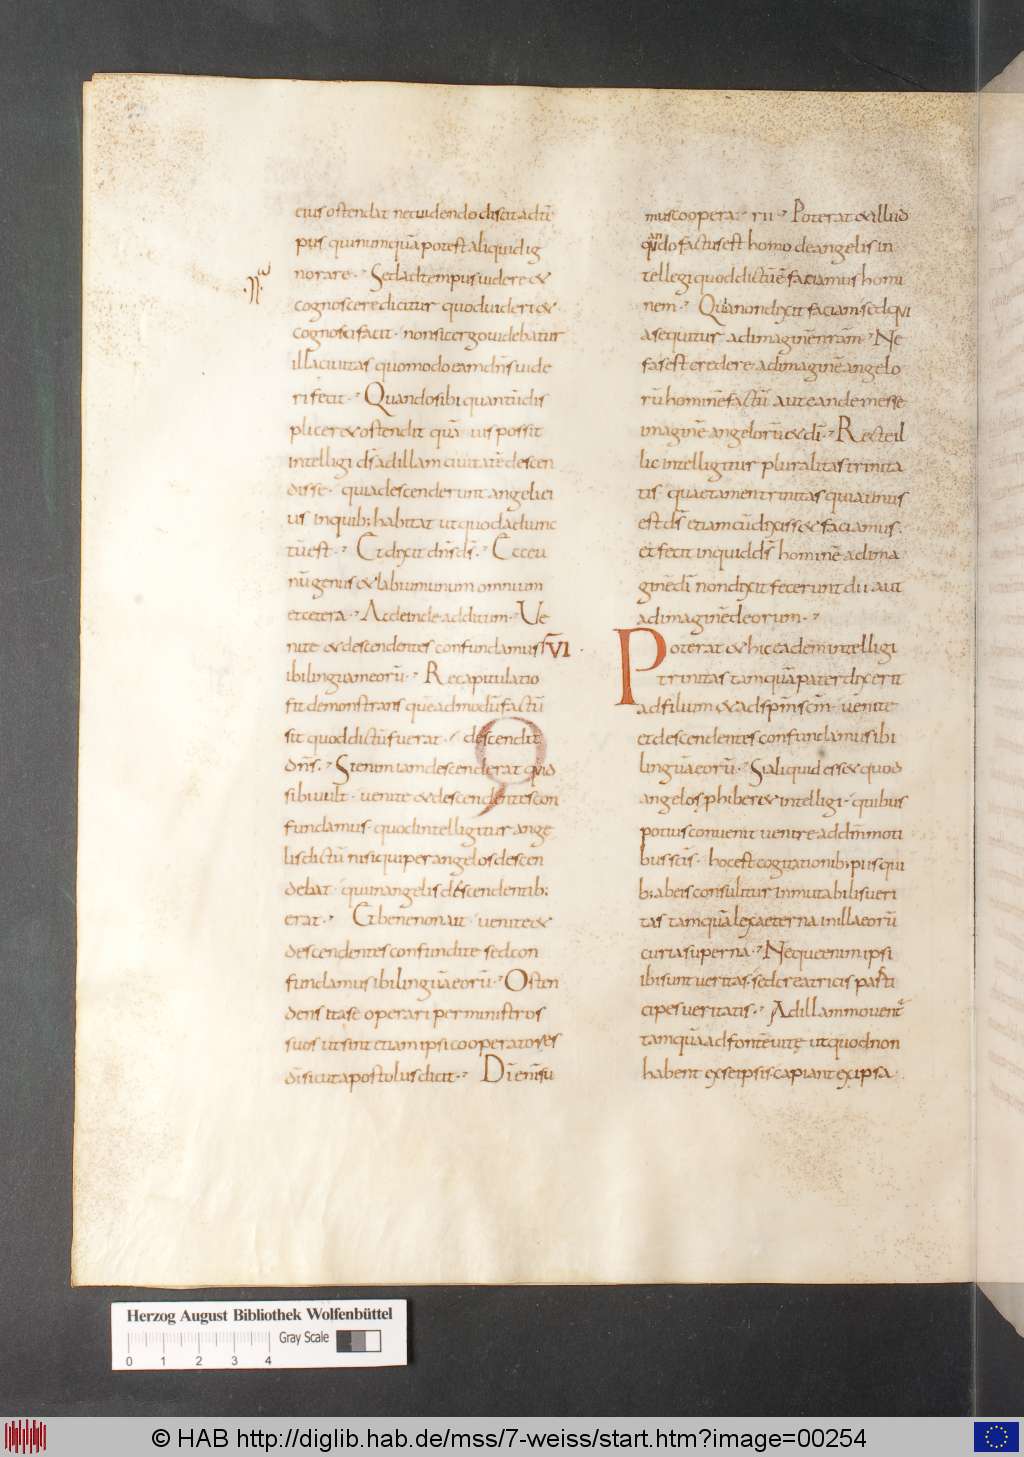 eius ostendat nec uidendo discit ad tē
pus qui numquā potest aliquid ig
norare. Sed ad tempus uidere &
cognoscere dicitur quod uideri &
cognosci facit. non sic ergo uidebatur
illa ciuitas quomodo eam dn̄s uide
ri fecit. Quando sibi quantū dis
plicer& ostendit
intelligi dn̄ ad illam ciuitatē descen
disse. quia descenderunt angeli ei
us in quib; habitat ut quod adiunc
tū est. Et dixit dn̄s ds̄. Ecce u
nū genus & labium unum omnium
et cetera. Ac deinde additum. Ve
nite & descendentes confundamus
VI
ibi linguam eorū. Recapitulatio
fit demonstrans quēadmodū factū
sit quod dictū fuerat. descendit
dn̄s. Si enim iam descenderat quid
sibi uult. uenite & descendentes con
fundamus. quod intelligitur ange
lis dictū nisi qui per angelos descen
debat. qui in angelis descendentib;
erat. Et bene non ait uenite &
descendentes confundite sed con
fundamus ibi linguā eorū. Osten
dens ita se operari per ministros
suos ut sint etiam ipsi cooperatores
dī sicut apostolus dicit. Dī enim su
mus cooperarii. Poterat & illud
quando factus est homo de angelis in
tellegi quod dictū ē faciamus homi
nem. Quia non dixit faciam sed qui
a sequitur ad imaginē nrām. Ne
fas est credere ad imaginē angelo
rū hominē factū aut eandem esse
imaginē angelorū & dī. Recte il
lic intelligitur pluralitas trinita
tis. quae tamen trinitas quia unus
est ds̄ etiam cū dixiss& faciamus.
et fecit inquid ds̄ hominē ad ima
ginē dī non dixit fecerunt dii aut
ad imaginē deorum.
Poterat & hic eadem intelligi
trinitas tamquā pater dixerit
ad filium & ad spm̄ scm̄ uenite
et descendentes confundamus ibi
linguā eorū. Si aliquid ess& quod
angelos phiber& intelligi. quibus
potius conuenit uenire ad dm̄ moti
bus scīs. hoc est cogitationib; piis qui
b; ab eis consulitur inmutabilis ueri
tas tamquā lex aeterna in illa eorū
curia superna. Neque enim ipsi
ibi sunt ueritas. sed creatricis parti
cipes ueritatis. Ad illam mouent̄
tamquā ad fontē uitę ut quod non
habent ex se ipsis capiant ex ipsa
Herzog August Bibliothek Wolfenbüttel
Gray Scale
0 1 2 3 4
© HAB http://diglib.hab.de/mss/7-weiss/start.htm?image=00254